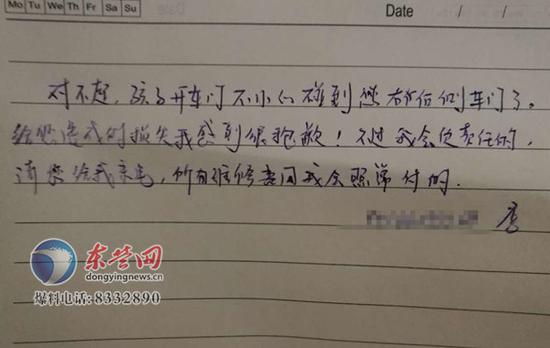 Mo Tu We Th Fr Sa Su
Date / /
对不起，孩子开车门不小心碰到您右后侧车门了。
给您造成的损失我感到很抱歉！不过我会负责任的，
请您给我来电，所有维修费用我会照常付的.
李
东营网
dongyingnews.cn
爆料电话:8332890